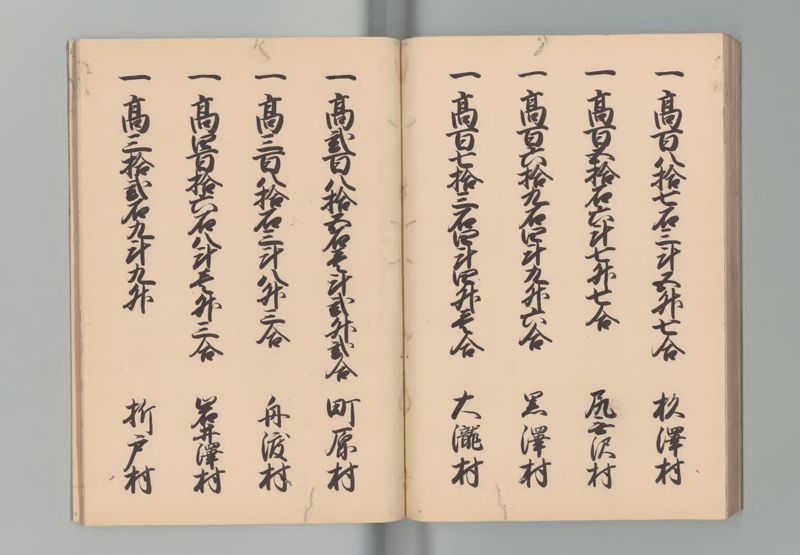 一 髙百八拾七石三斗五升七合 杦澤村
一 髙百五拾石六斗七升七合 尻无沢村
一 髙百六拾九石四斗九升六合 黒澤村
一 髙百七拾三石四斗四升壱合 大瀧村
一 髙弐百八拾五石壱斗弐升弐合 町原村
一 髙三百八拾石三斗八升三合 舟渡村
一 髙四百拾六石八斗壱升三合 岩井澤村
一 髙三拾弐石九斗九升 折戸村